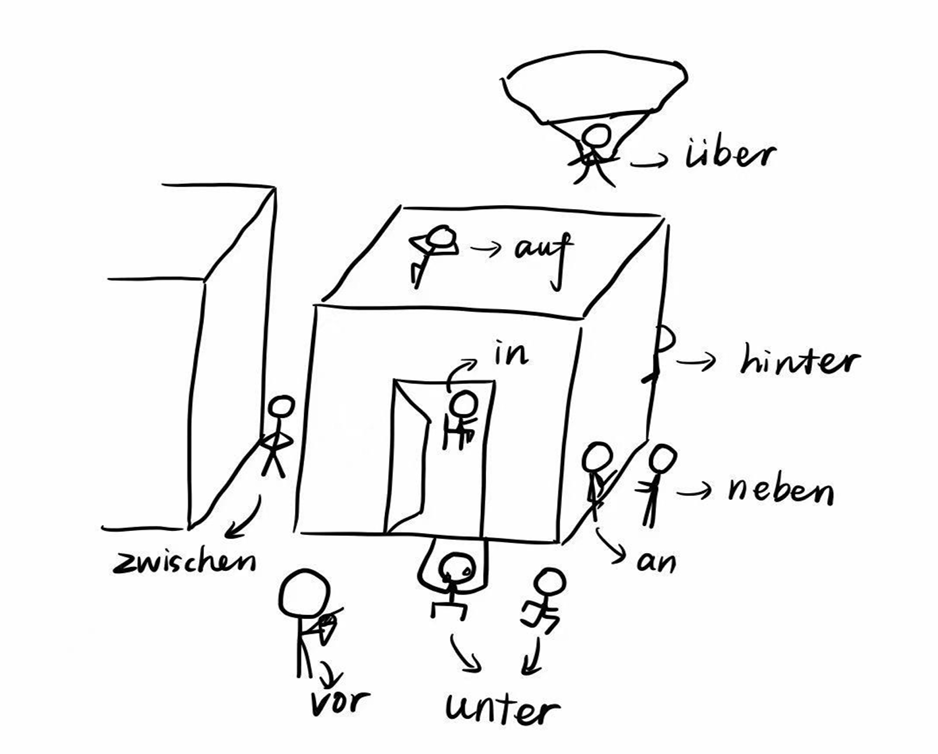 über
auf
in
hinter
neben
an
zwischen
vor
unter